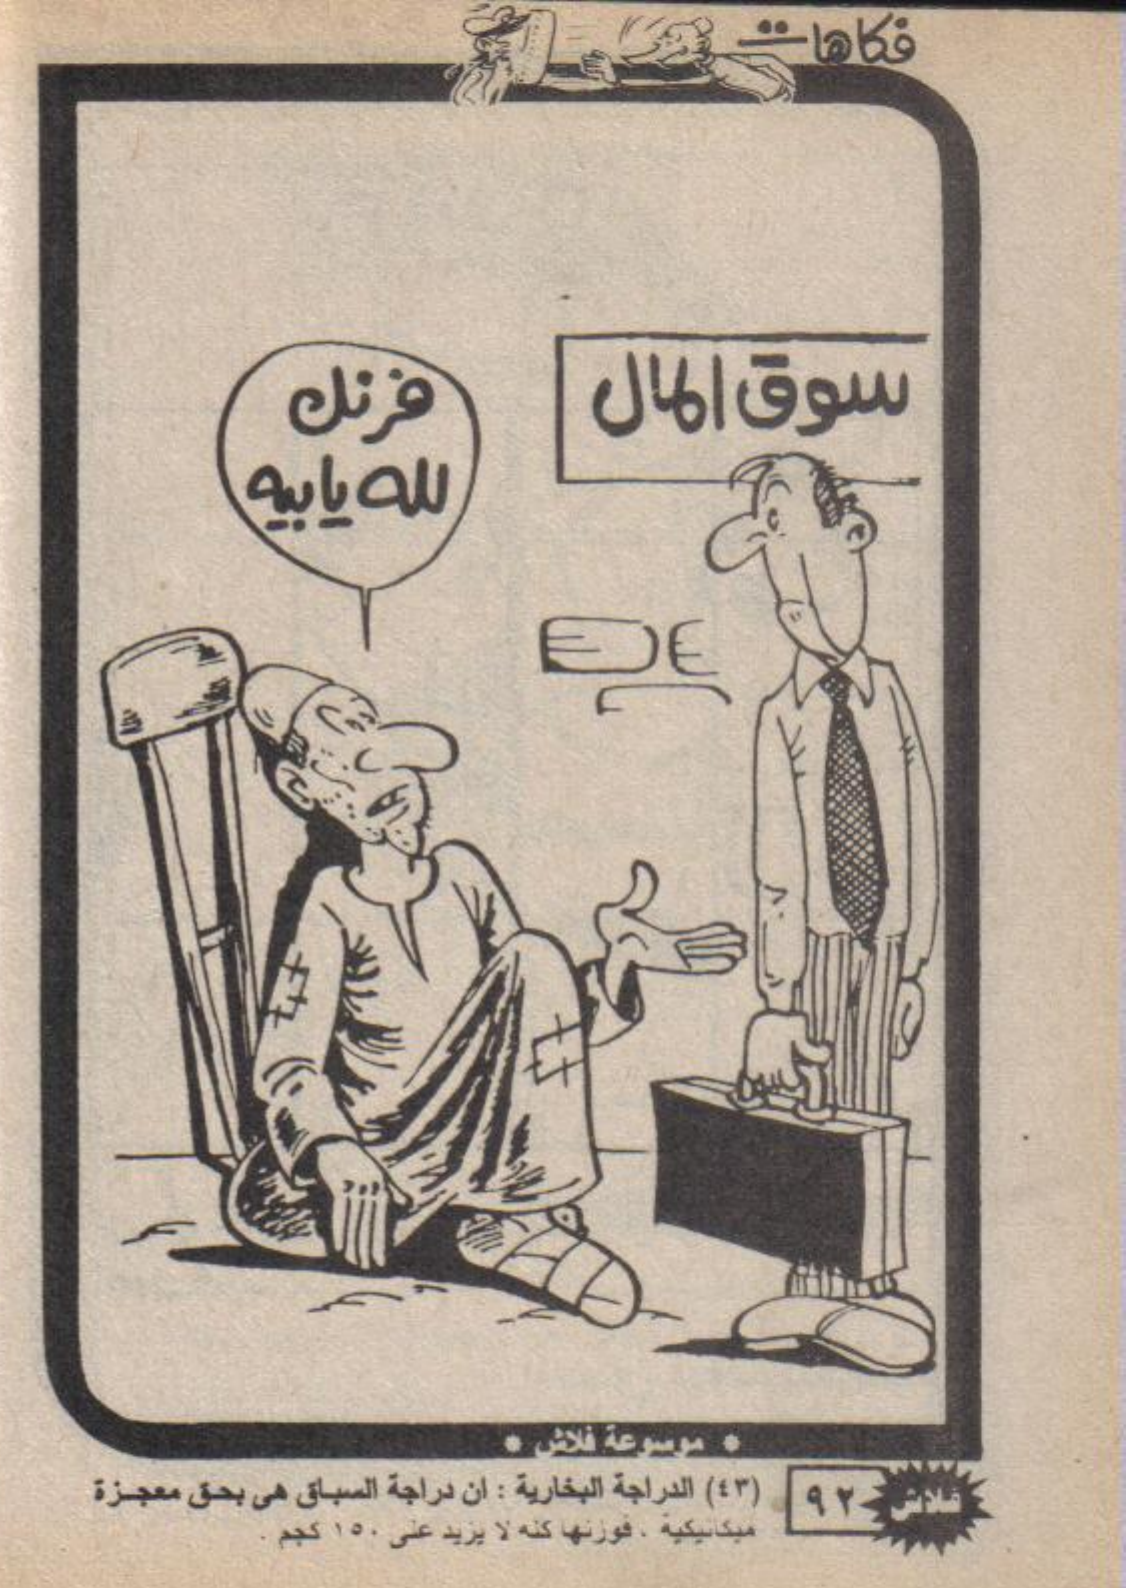 فكاهات
سوق المال
فرنك
لله يا بيه
* موسوعة فلاش *
(٤٣) الدراجة البخارية : ان دراجة السباق هى بحق معجزة
ميكانيكية ، فوزنها كله لا يزيد على ١٥٠ كجم .
٩٢
فلاش